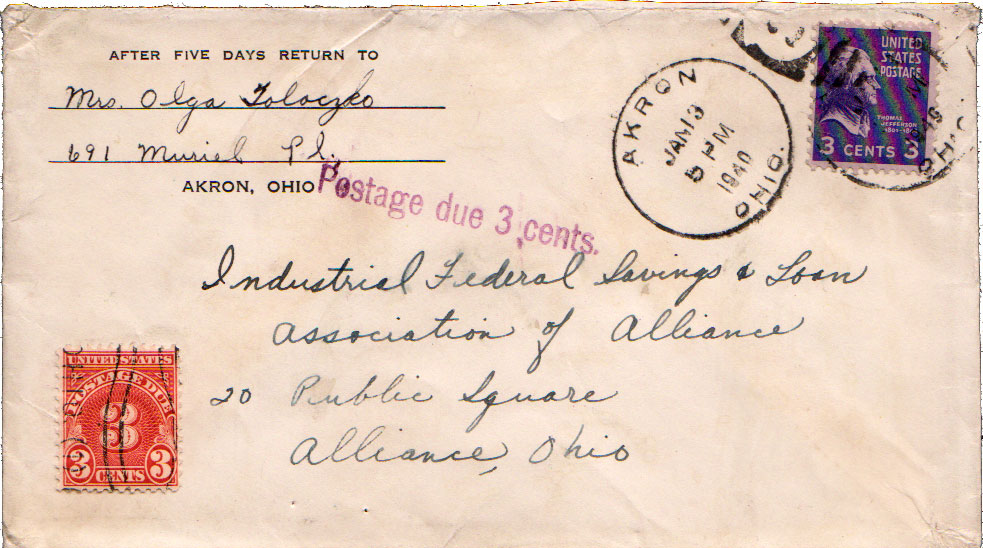 AFTER FIVE DAYS RETURN TO
Mrs. Olga Toloczko
691 Muriel Pl.
AKRON, OHIO
Postage due 3 cents.
AKRON OHIO.
JAN 13
5 PM
1940
UNITED
STATES
POSTAGE
THOMAS
JEFFERSON
3 CENTS 3
Industrial Federal Savings & Loan
Association of Alliance
20 Public Square
Alliance, Ohio
UNITED STATES
POSTAGE DUE
3
3 CENTS 3